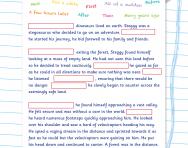 Next Over a while First All of a sudden Before
A few hours later After Then Many years ago
dinosaurs lived on Earth. Steggy was a
stegosaurus who decided to go on an adventure.
he started his journey, he bid farewell to his family and friends.
exiting the forest, Steggy found himself
looking at a maze of empty land. He had not seen this land before
so he decided to tread cautiously. he gazed as far
as he could in all directions to make sure nothing was near.
, ensuring that there would be
no danger. he slowly began to saunter across the
seemingly safe land.
he found himself approaching a vast valley.
He felt secure and was almost in a care in the world.
he heard numerous footsteps quickly approaching him. He looked
over his shoulder and saw a herd of velociraptors heading his way.
He spied a raging stream in the distance and sprinted towards it as
fast as he could but the velociraptors were gaining on him. He put
his head down and continued to canter. A forest was in the distance